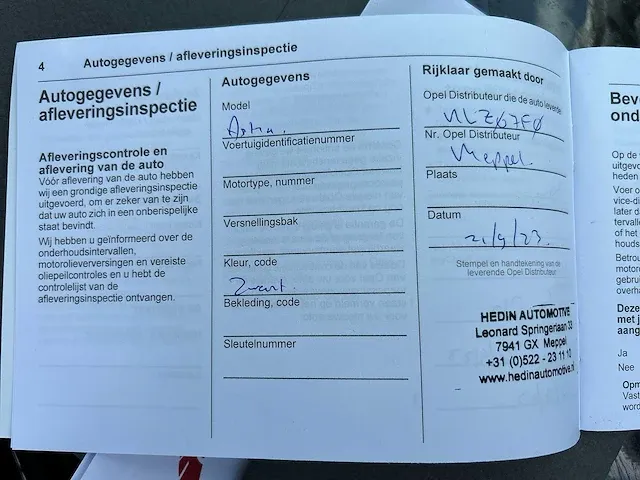 4
Autogegevens / afleveringsinspectie
Autogegevens /
afleveringsinspectie
Afleveringscontrole en
aflevering van de auto
Vóór aflevering van de auto hebben
wij een grondige afleveringsinspectie
uitgevoerd, om er zeker van te zijn
dat uw auto zich in een onberispelijke
staat bevindt.
Wij hebben u geïnformeerd over de
onderhoudsintervallen,
motorolieverversingen en vereiste
oliepeilcontroles en u hebt de
controlelijst van de
afleveringsinspectie ontvangen.
Autogegevens
Model
Astra.
Voertuigidentificatienummer
Motortype, nummer
Versnellingsbak
Kleur, code
Zwart.
Bekleding, code
Sleutelnummer
Rijklaar gemaakt door
Opel Distributeur die de auto leverde
Nr. Opel Distributeur
Meppel.
Plaats
Datum
21/9/23.
Stempel en handtekening van de
leverende Opel Distributeur
HEDIN AUTOMOTIVE
Leonard Springerlaan 33
7941 GX Meppel
+31 (0)522 - 23 11 10
www.hedinautomotive.nl
Bev
ond
Op de
uitgevo
heden
Voer o
vice-di
later d
tervalle
of het
houds
Betrou
motore
gebrui
overha
Deze
met j
aang
Ja
Nee
Opm
Vast
word